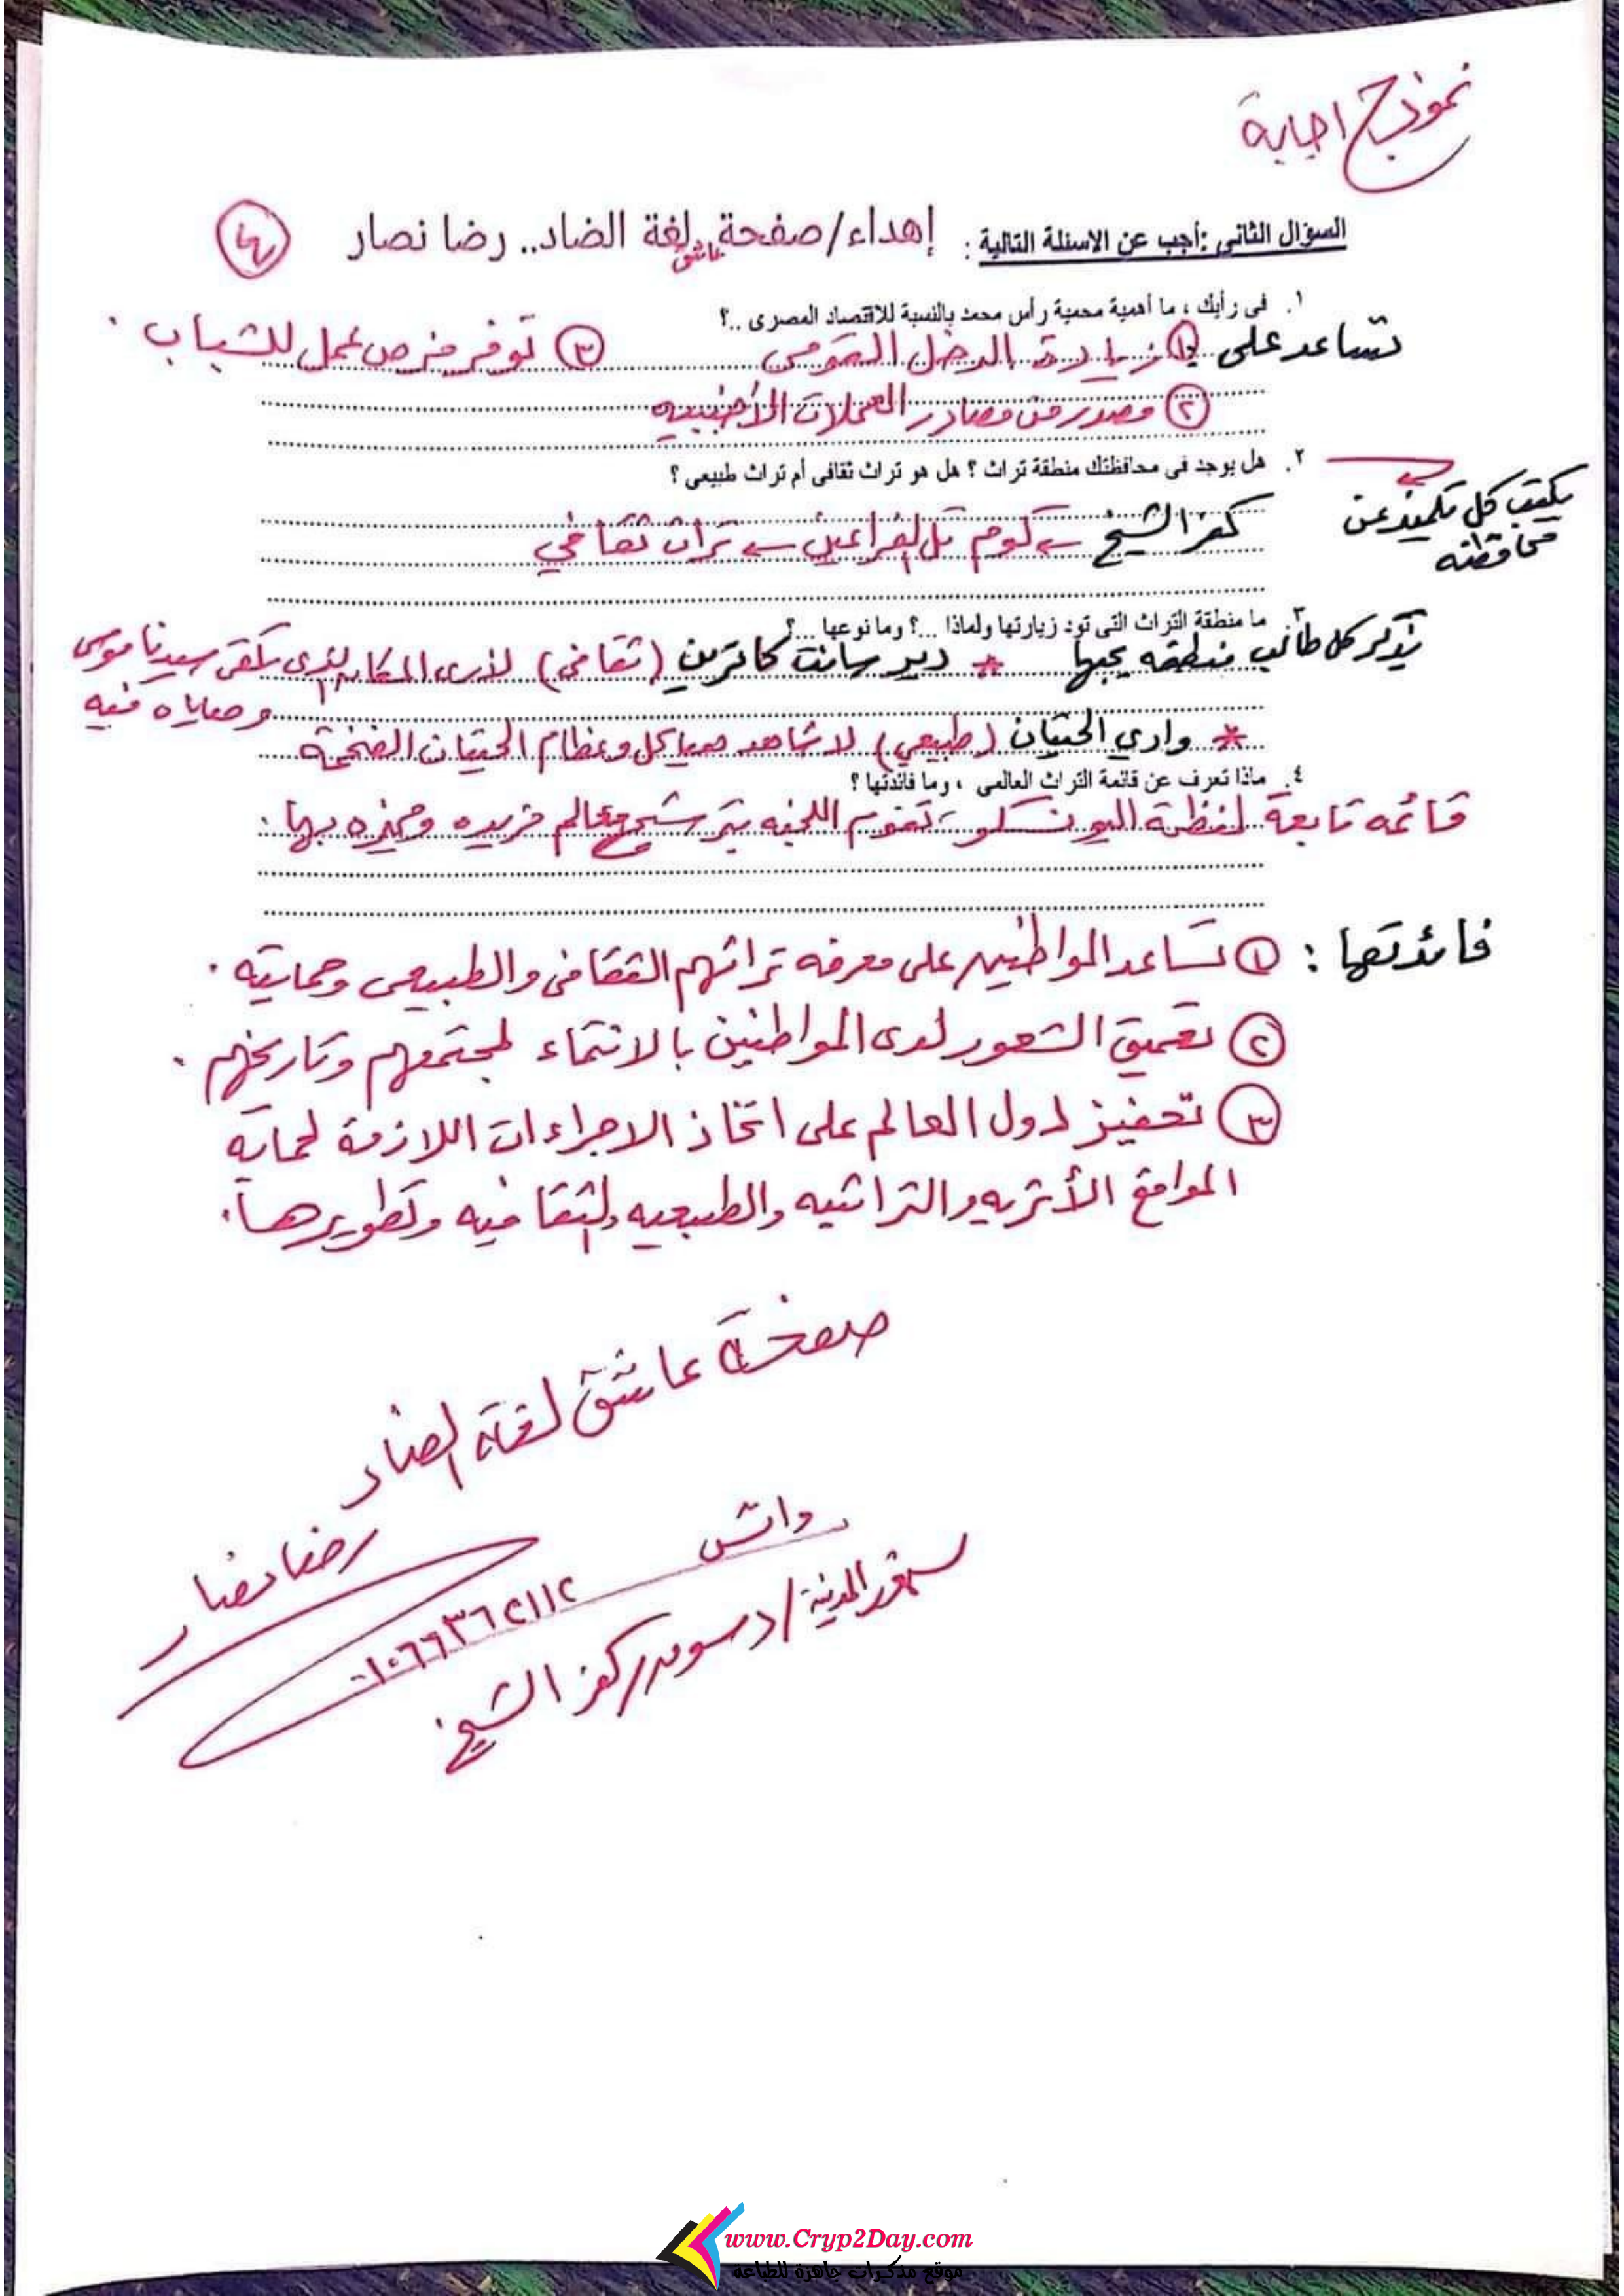 نموذج اجابة
السؤال الثانى :أجب عن الاسئلة التالية : إهداء/صفحة عاشق لغة الضاد.. رضا نصار
١. فى رأيك ، ما أهمية محمية رأس محمد بالنسبة للاقتصاد المصرى ..؟
تساعد على ١ زيادة الدخل القومى ٣ توفر فرص عمل للشباب .
٢ مصدر من مصادر العملات الأجنبيه
٢. هل يوجد فى محافظتك منطقة تراث ؟ هل هو تراث ثقافى أم تراث طبيعى ؟
يكتب كل تلميذ عن
محافظته
كفر الشيخ ← كوم تل الفراعين ← تراث ثقافي
٣. ما منطقة التراث التى تود زيارتها ولماذا ...؟ وما نوعها ...؟
يذكر كل طالب منطقه يحبها * دير سانت كاترين (ثقافى) لأرى المكان الذى تلقى سيدنا موسى
وصاياه فيه
* وادي الحيتان (طبيعي) لاشاهد هياكل وعظام الحيتان الضخمة
٤. ماذا تعرف عن قائمة التراث العالمى ، وما فائدتها ؟
قائمه تابعة لمنظمة اليونسكو، تقوم اللجنه بترشيح معالم فريده ومميزه بها.
فائدتها : ١ تساعد المواطنين على معرفه تراثهم الثقافى والطبيعى وحمايته .
٢ تعميق الشعور لدى المواطنين بالانتماء لمجتمعهم وتاريخهم .
٣ تحفيز دول العالم على اتخاذ الاجراءات اللازمة لحماية
المواقع الأثريه والتراثيه والطبيعيه والثقافيه وتطويرها.
صفحة عاشق لغة الضاد
رضا نصار
واتس
٠١٠٦٦٣٦٢١١٢
سنهور المدينة/دسوق/كفر الشيخ
www.Cryp2Day.com
موقع مذكرات جاهزة للطباعة